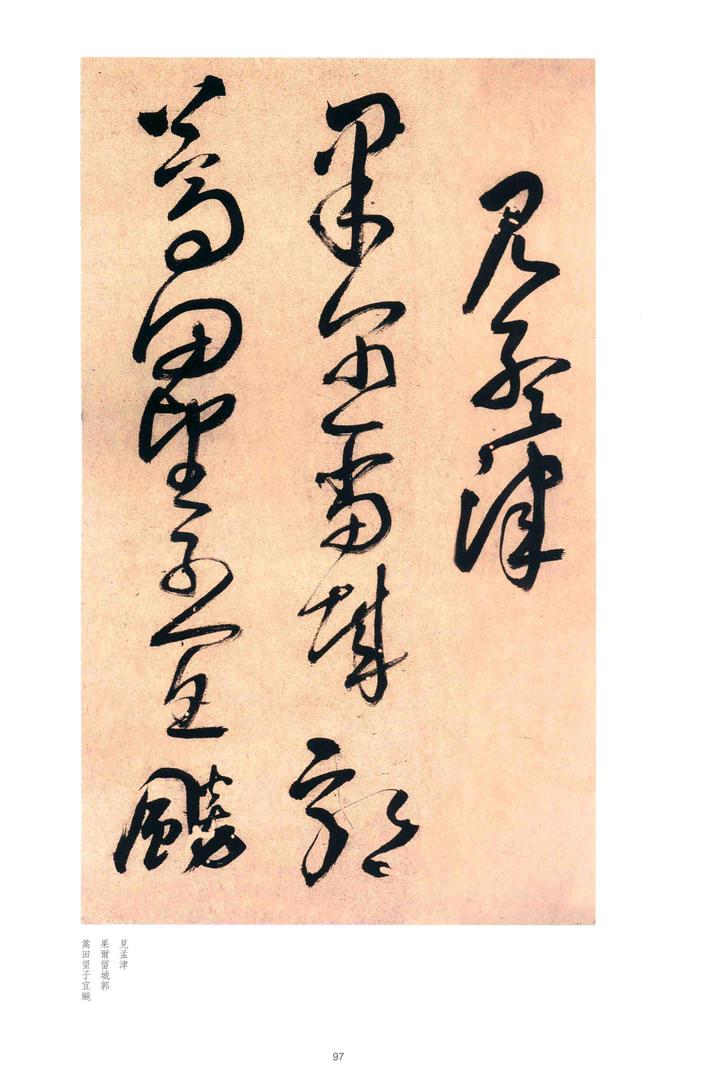 見孟津
果爾留城郭
蒿田望子宜飈
見孟津
果爾留城郭
蒿田望子宜飈
97